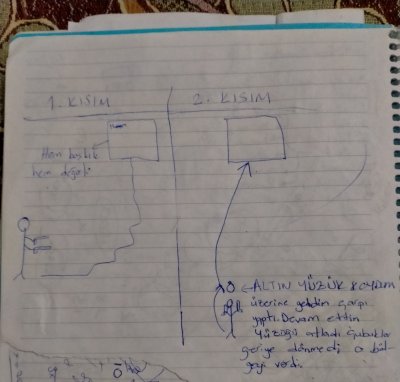 1. KISIM
2. KISIM
Hem başlık
hem değerli
ALTIN YÜZÜK KOYDUM
üzerine geldim çarpı
yaptı. Devam ettim
yüzüğü atladı çubuklar
geriye dönmedi o böl
geyi verdi.